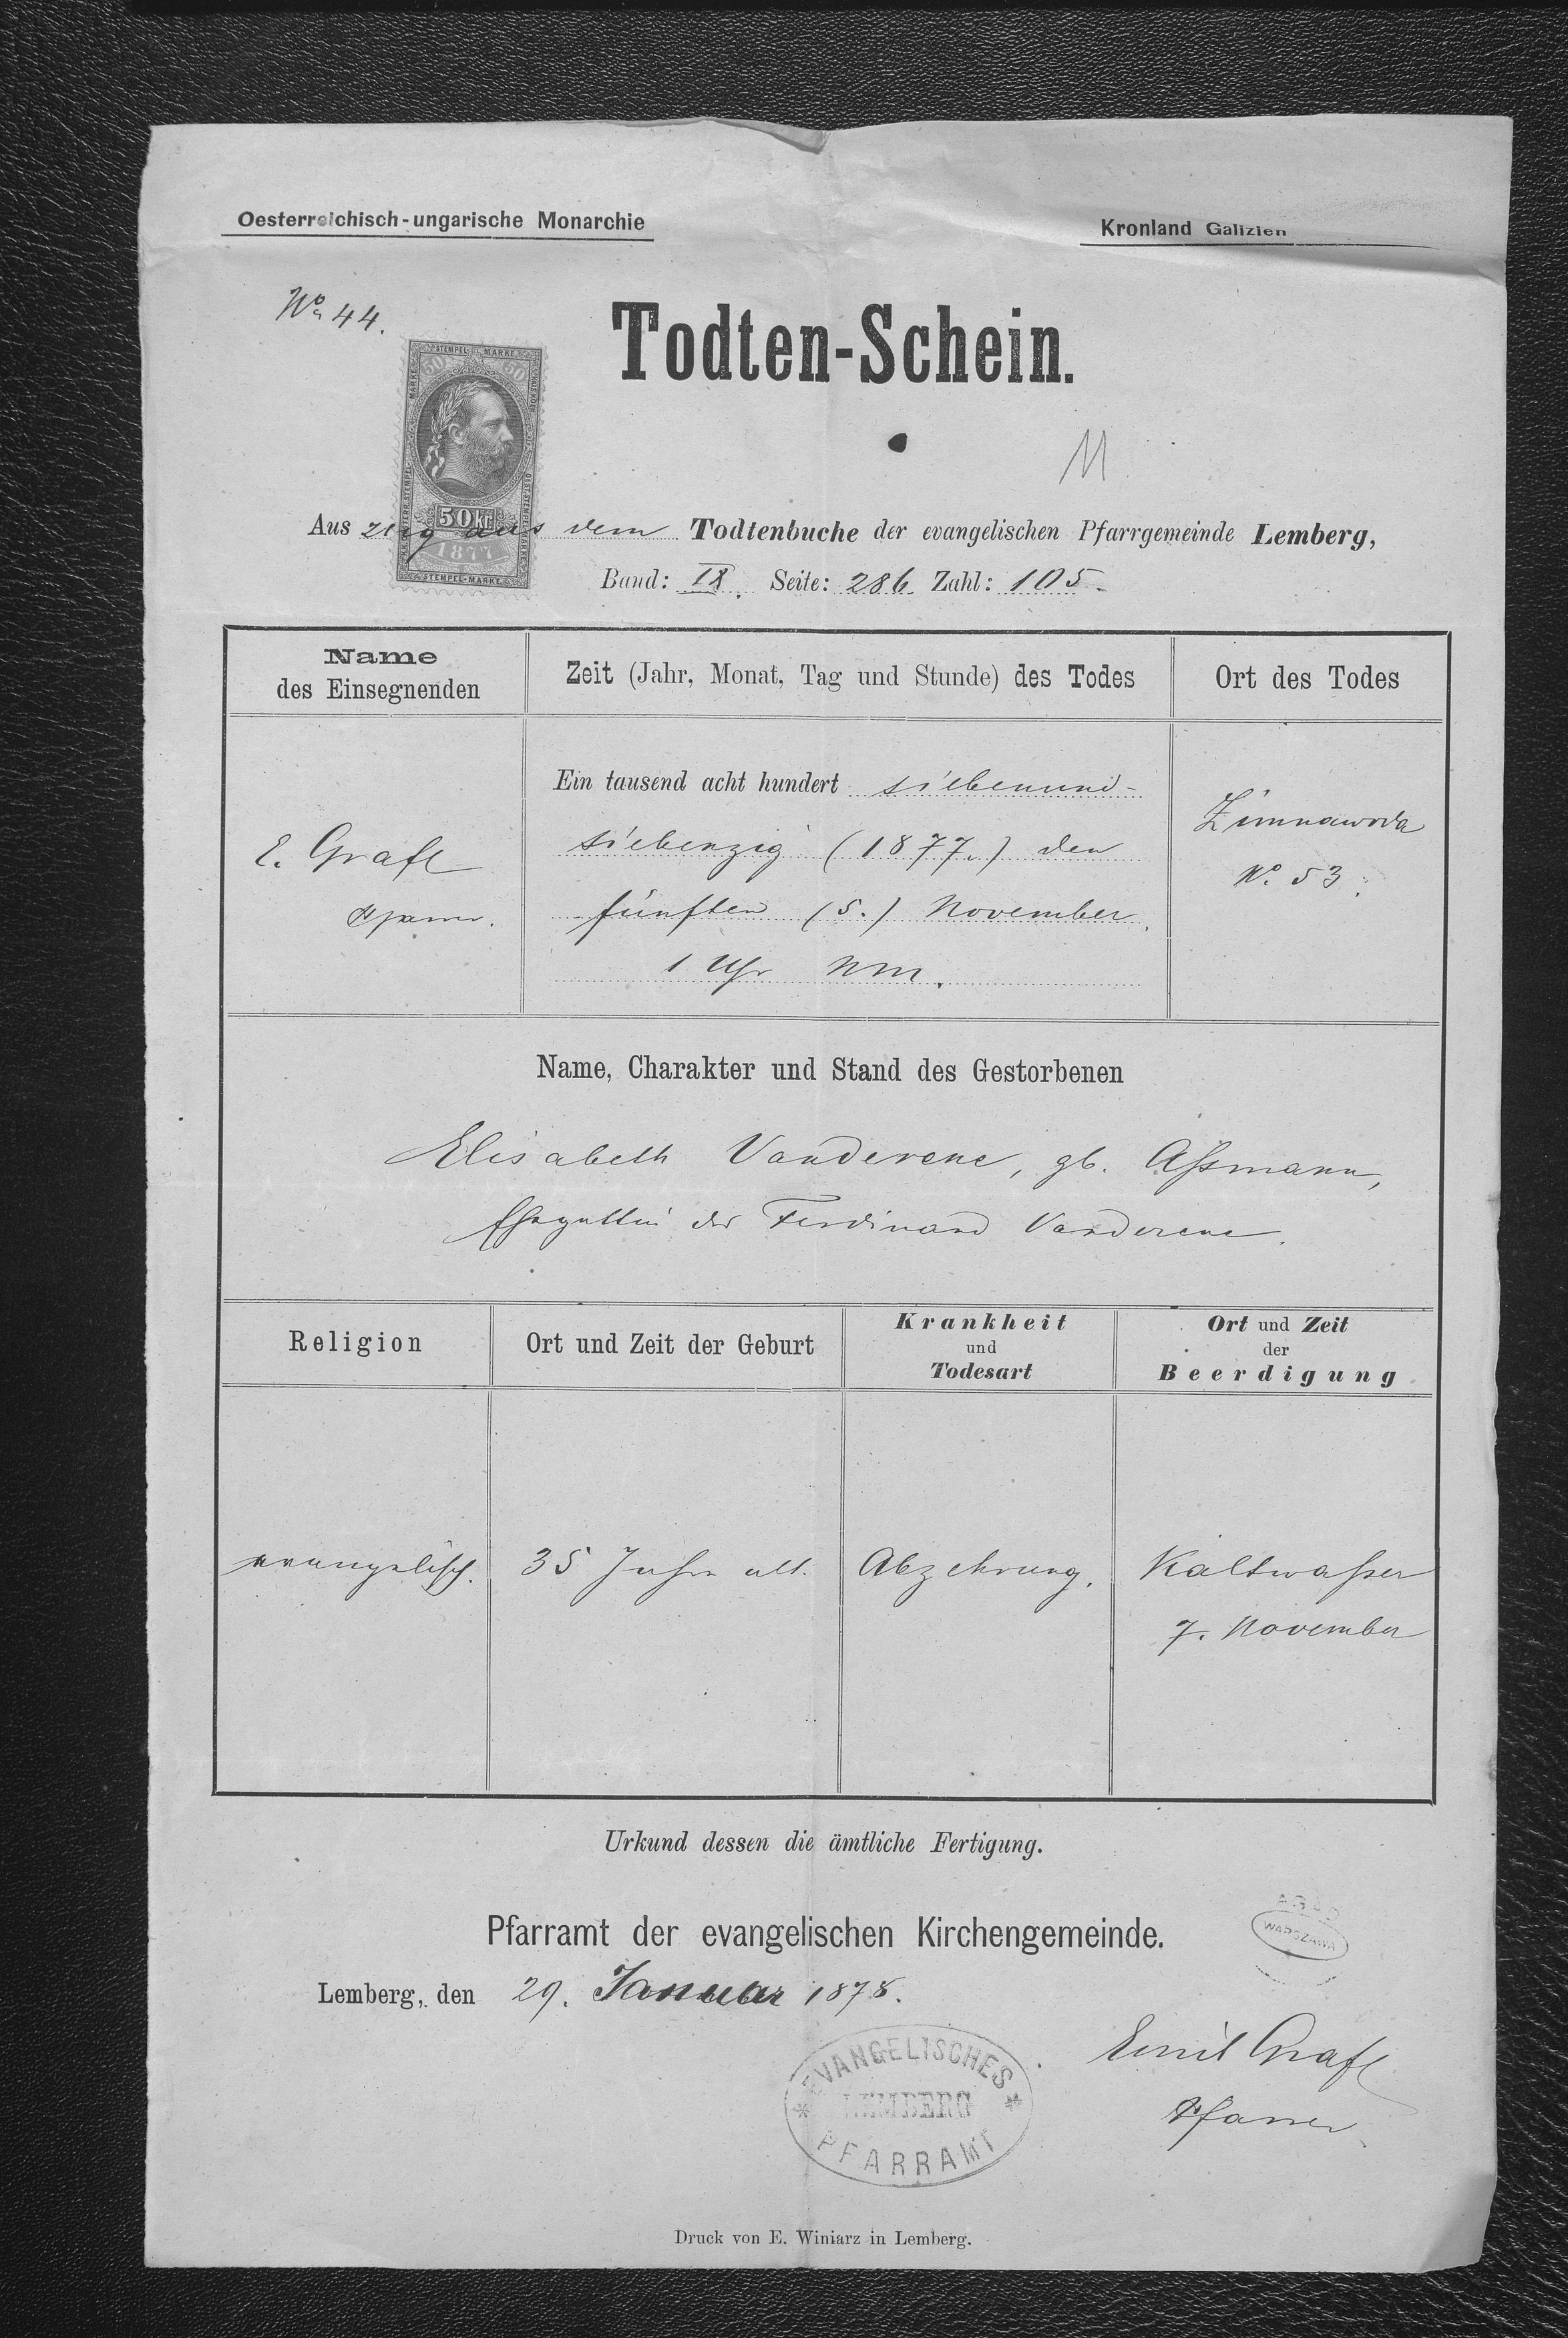 Oesterreichisch-ungarische Monarchie
Kronland Galizien
No 44.
Todten-Schein.
STEMPEL MARKE
50 50
50 Kr
1877
STEMPEL-MARKE
Auszug aus dem Todtenbuche der evangelischen Pfarrgemeinde Lemberg,
Band: IX. Seite: 286 Zahl: 105.
Name
des Einsegnenden
Zeit (Jahr, Monat, Tag und Stunde) des Todes
Ort des Todes
E. Grafl
Pfarrer.
Ein tausend acht hundert siebenund-
siebenzig (1877.) den
fünften (5.) November
1 Uhr NM.
Zimnawoda
No. 53.
Name, Charakter und Stand des Gestorbenen
Elisabeth Vanderene, gb. Aſsmann,
Ehegattin des Ferdinand Vanderene.
Religion
Ort und Zeit der Geburt
Krankheit
und
Todesart
Ort und Zeit
der
Beerdigung
evangelisch.
35 Jahre alt.
Abzehrung.
Kaltwaſser
7. November
Urkund dessen die ämtliche Fertigung.
Pfarramt der evangelischen Kirchengemeinde.
AGAD
WARSZAWA
Lemberg, den 29. Januar 1878.
EVANGELISCHES
LEMBERG
PFARRAMT
Emil Grafl
Pfarrer
Druck von E. Winiarz in Lemberg.